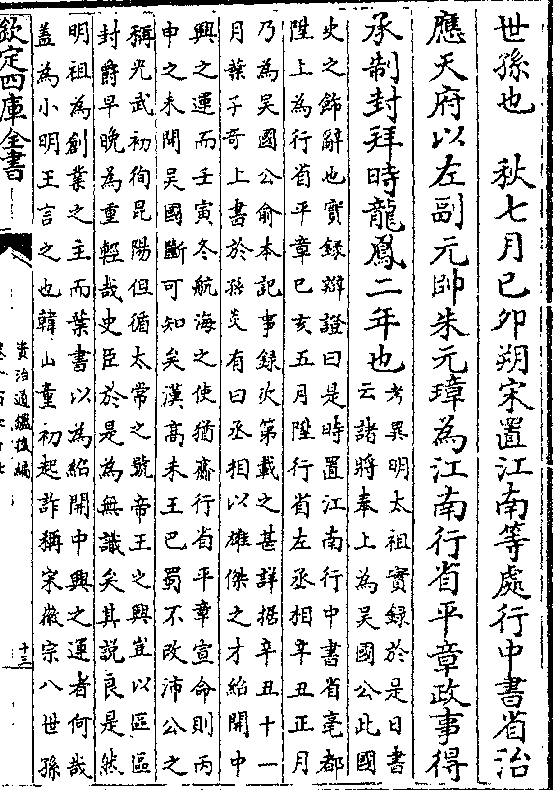 世孫也　秋七月己卯朔宋置江南等處行中書省治
應天府以左副元帥朱元璋為江南行省平章政事得
承制封拜時龍鳳二年也
考異明太祖實録於是日書
云諸將奉上為吳國公此國
史之飾辭也實録辯證曰是時置江南行中書省亳都
陞上為行省平章巳亥五月陞行省左丞相辛丑正月
乃為吳國公俞本記事録次第載之甚詳据辛丑十一
月葉子奇上書於孫炎有曰丞相以雄傑之才紹開中
興之運而壬寅冬航海之使猶齎行省平章宣命則丙
申之未開吳國斷可知矣漢高未王巴蜀不改沛公之
稱光武初徇昆陽但循太常之號帝王之興豈以區區
封爵早晚為重輕哉史臣於是為無識矣其說良是然
明祖為創業之主而葉書以為紹開中興之運者何哉
盖為小明王言之也韓山童初起詐稱宋徽宗八世孫
欽定四庫全書
資治通鑑後編
十三